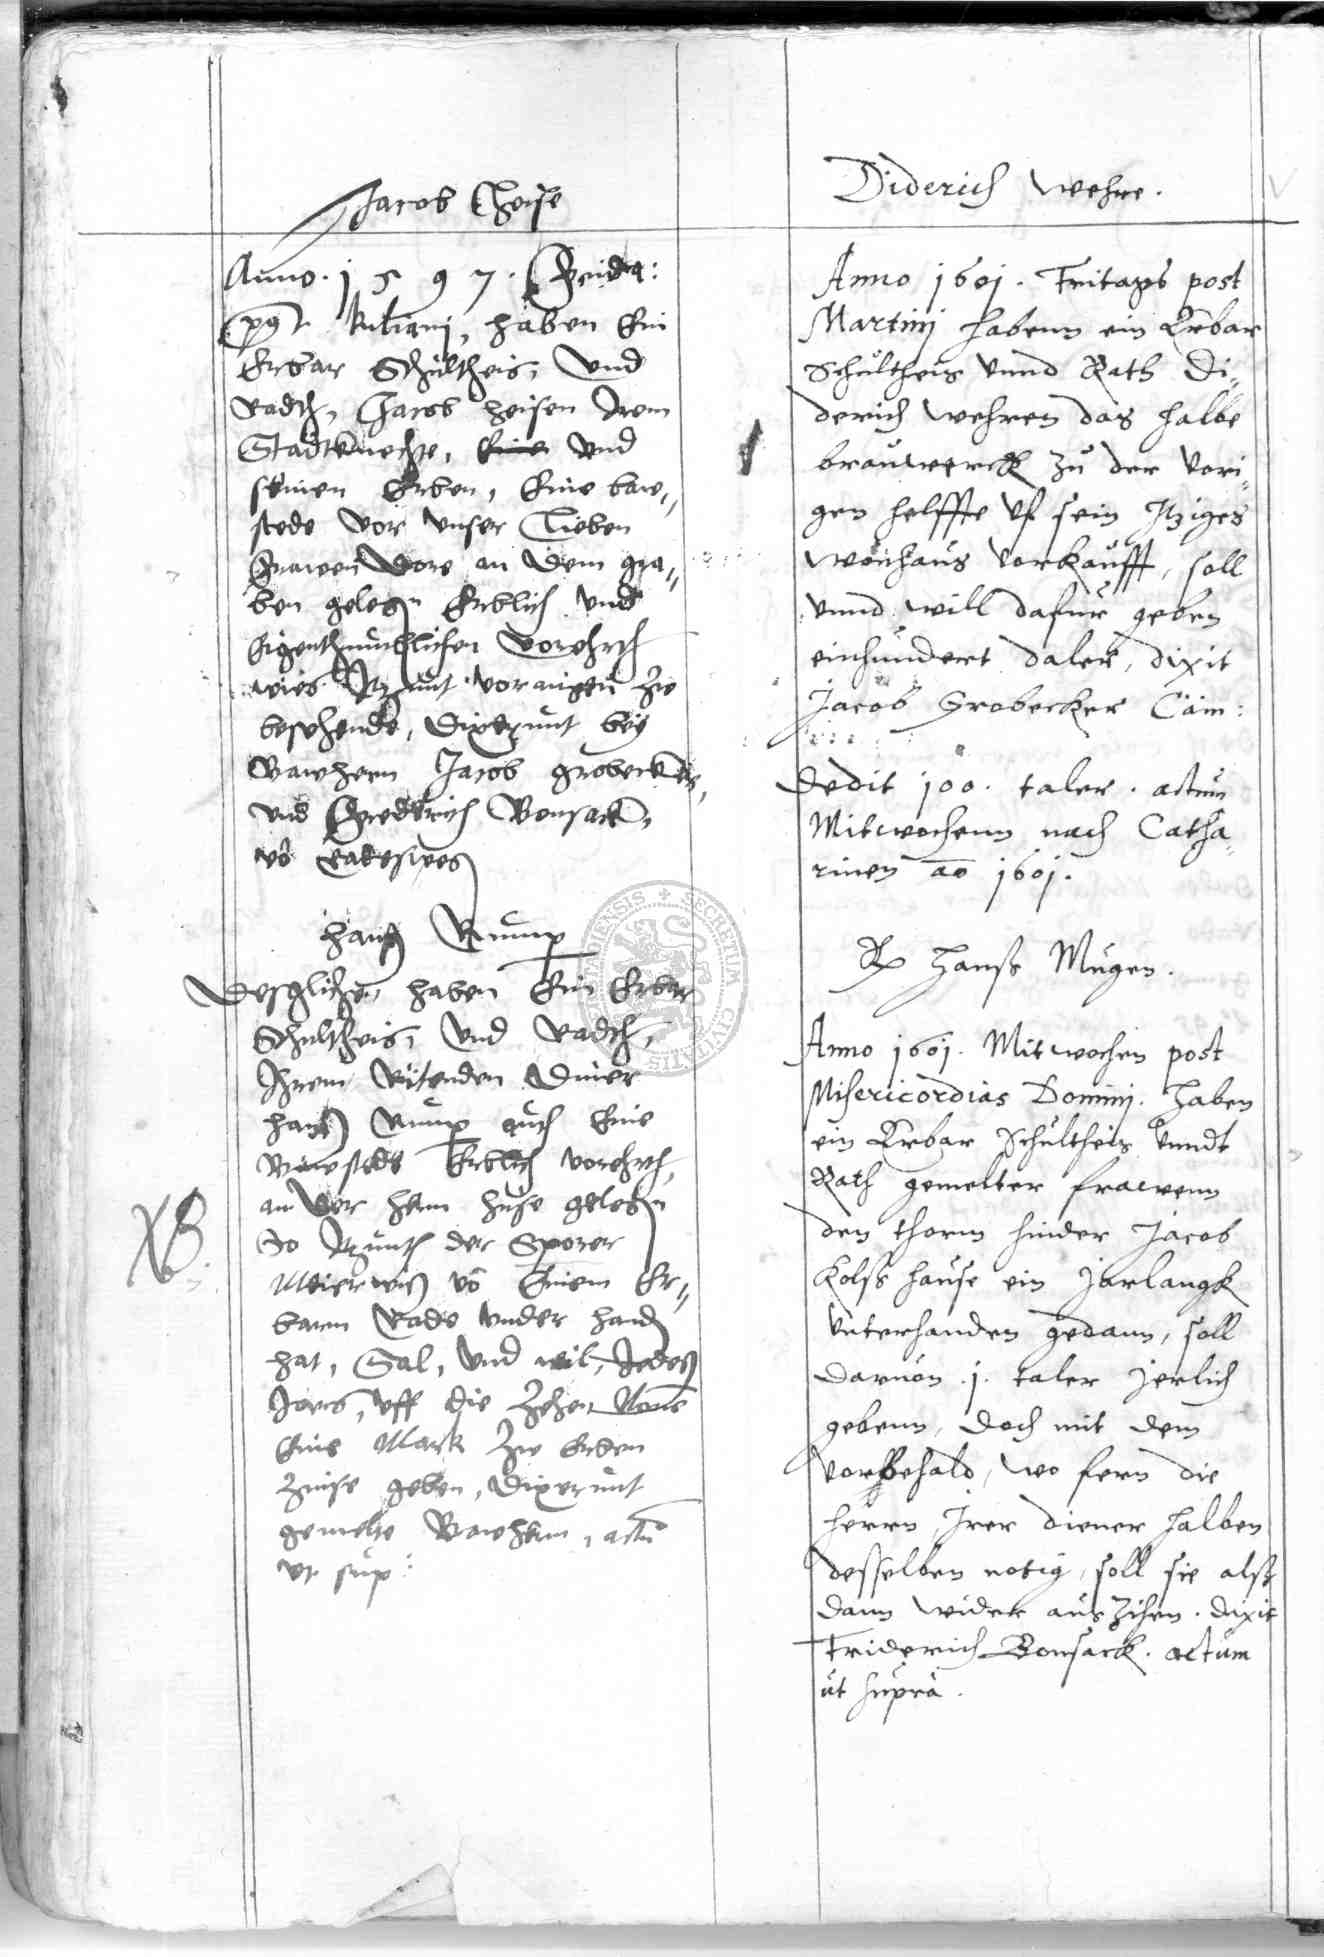 Jacob Heise
Anno. 1597. Freidag:
post Kiliani, haben Ein
Erbar Schultheis, und
Radth, Jacob Heisen Irem
Stadtknechte, und
seinen Erben, Eine baw-
stede vor unser Lieben
Frawen Dore an dem gra-
ben gelegen Erblich und
Eigenthumblichen vorehrth
wies Itzunt vor augen zw
besehende, dixerunt bey
Bawhern Jacob Grobecker,
und Frederich Bonsack,
vo Radeswegen
Hans Rump
Desglichen, haben Ein Erbar
Schultheis, und Radth,
Ihrem Ritenden Diner
Hans Rump auch Eine
Bawstede Erblich vorehrth,
an der huse gelegen
So Itzunth der Sporer
vo Einem Er-
barn Rade under handen
hat, Sal, und wil, Jedes
Jares, uff die Zehen
Eine Marck zw Erben
Zinse geben, dixerunt
gemelte Bawhern, actu
ut sup:
NB.
Diderich Wehre.
Anno 1601. Fritags post
Martinj habenn ein Erbar
Schultheis vnnd Rath Di-
derich Wehren das halbe
brauwerck zu der vori-
gen helffte vf sein Itziges
wonhaus vorkaufft, soll
vnnd will dafur geben
einhundert daler, dixit
Jacob Grobecker Cam:
Dedit 100. taler. actum
Mitwochenn nach Catha-
rinen ao 1601.
Hanß Mugen.
Anno 1601. Mitwochen post
Misericordias Dominj. Haben
ein Erbar Schultheis vnndt
Rath gemelter frawenn
den thorm hinder Jacob
Kolß hause ein Jarlangk
vnterhanden gedann, soll
daruon .1. taler Jerlich
gebenn, doch mit dem
vorbehald, wo fern die
herrn, Irer diener halben
desselben notig, soll sie alß
dann wider ausZihen. dixit
Friderich Bonsack. actum
ut supra.
SECRETUM CIVITATIS